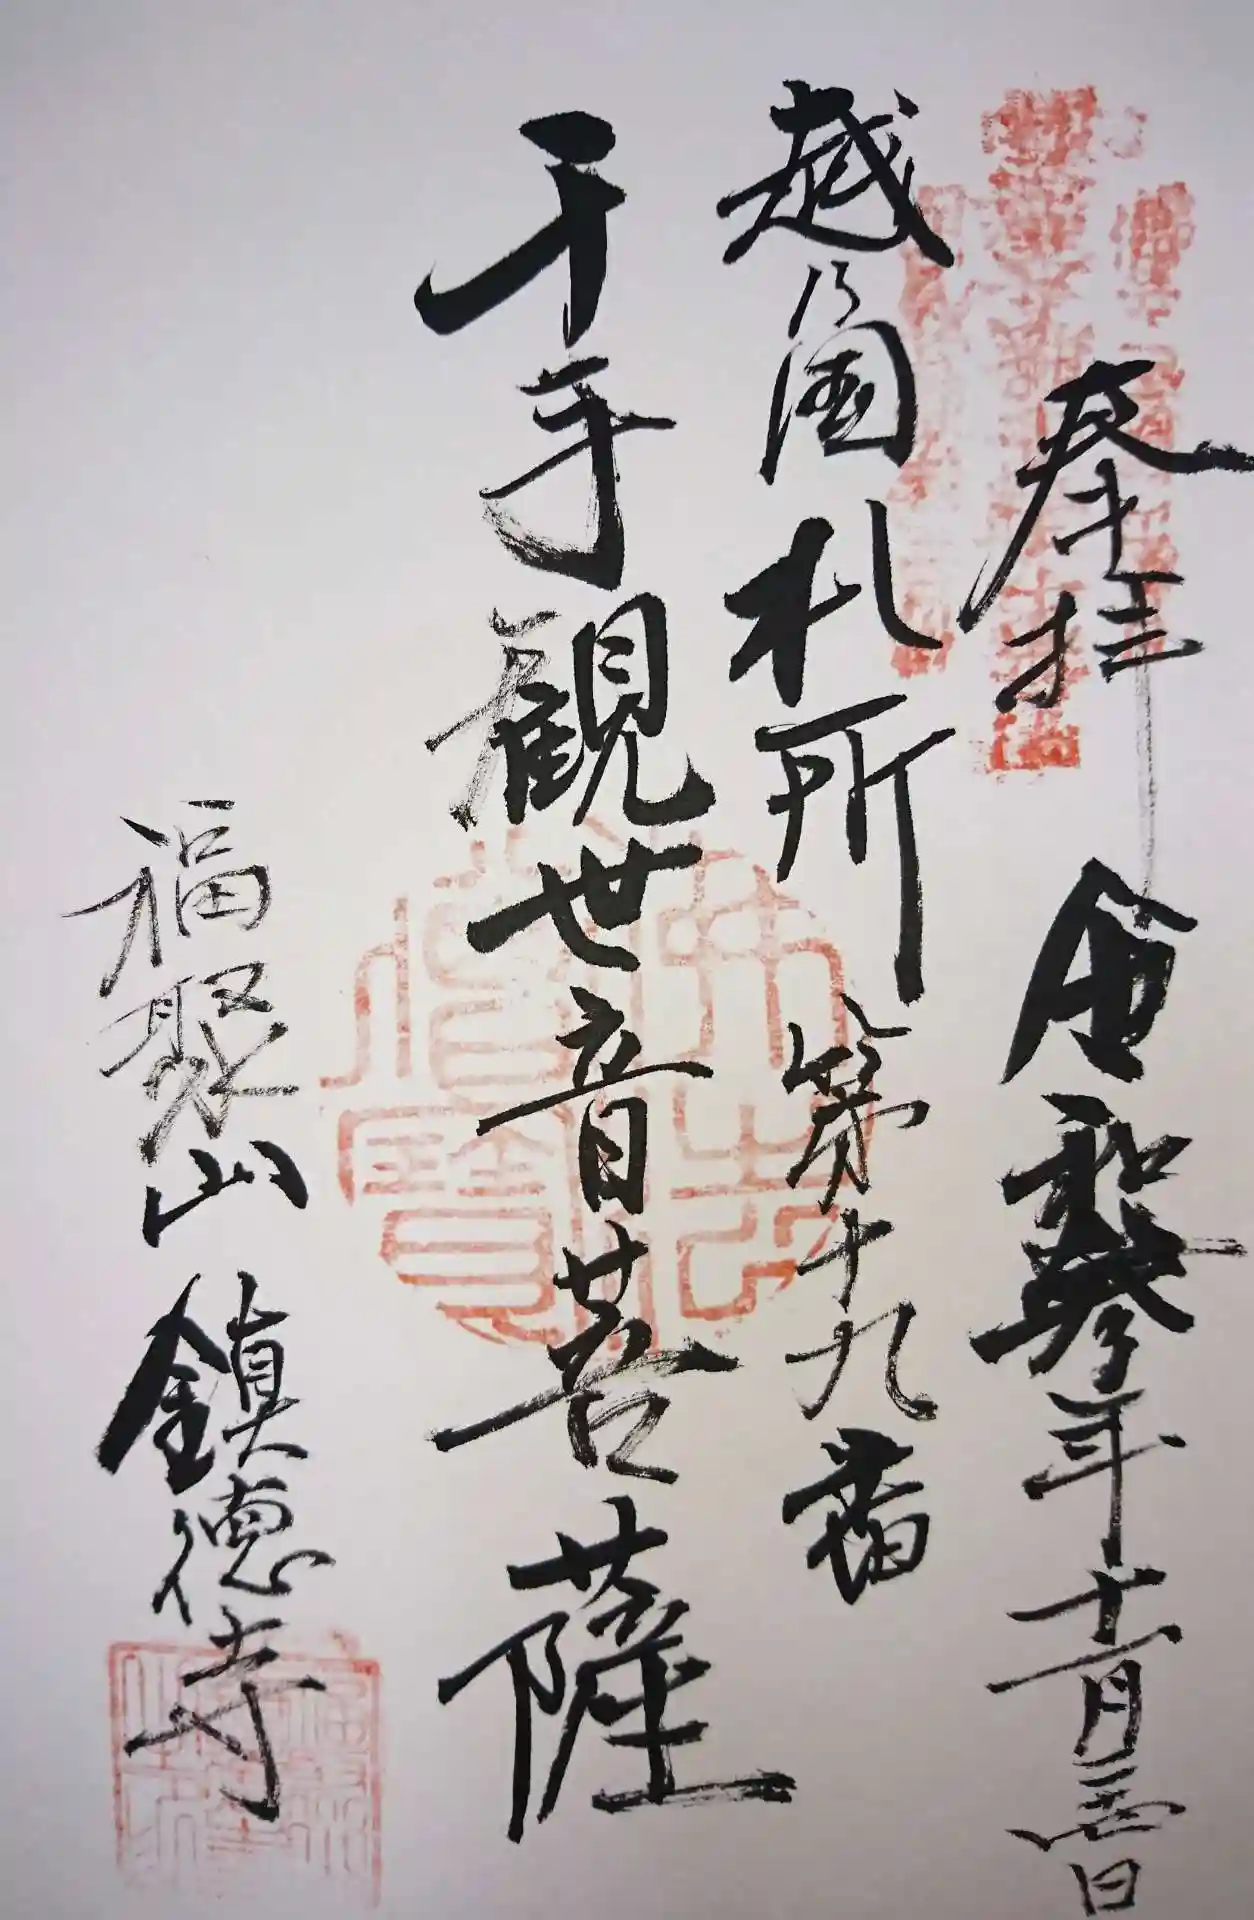 奉拝 令和参年十一月 日
越乃国札所第十九番
千手観世音菩薩
福聚山 鎮徳寺